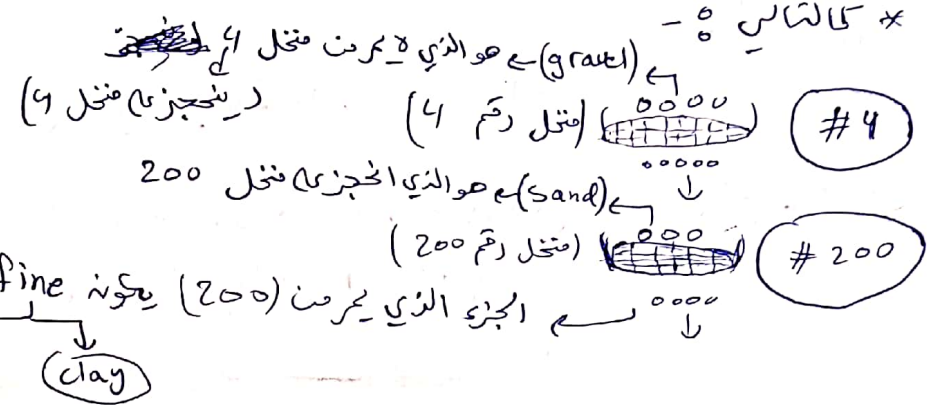 * كالتالي :-
(gravel) ← هو الذي لا يمر من منخل 4
(ينحجز عـ منخل 4)
(منخل رقم 4)
#4
(Sand) ← هو الذي انحجز عـ منخل 200
(منخل رقم 200)
#200
الجزء الذي يمر من (200) يكون fine
clay